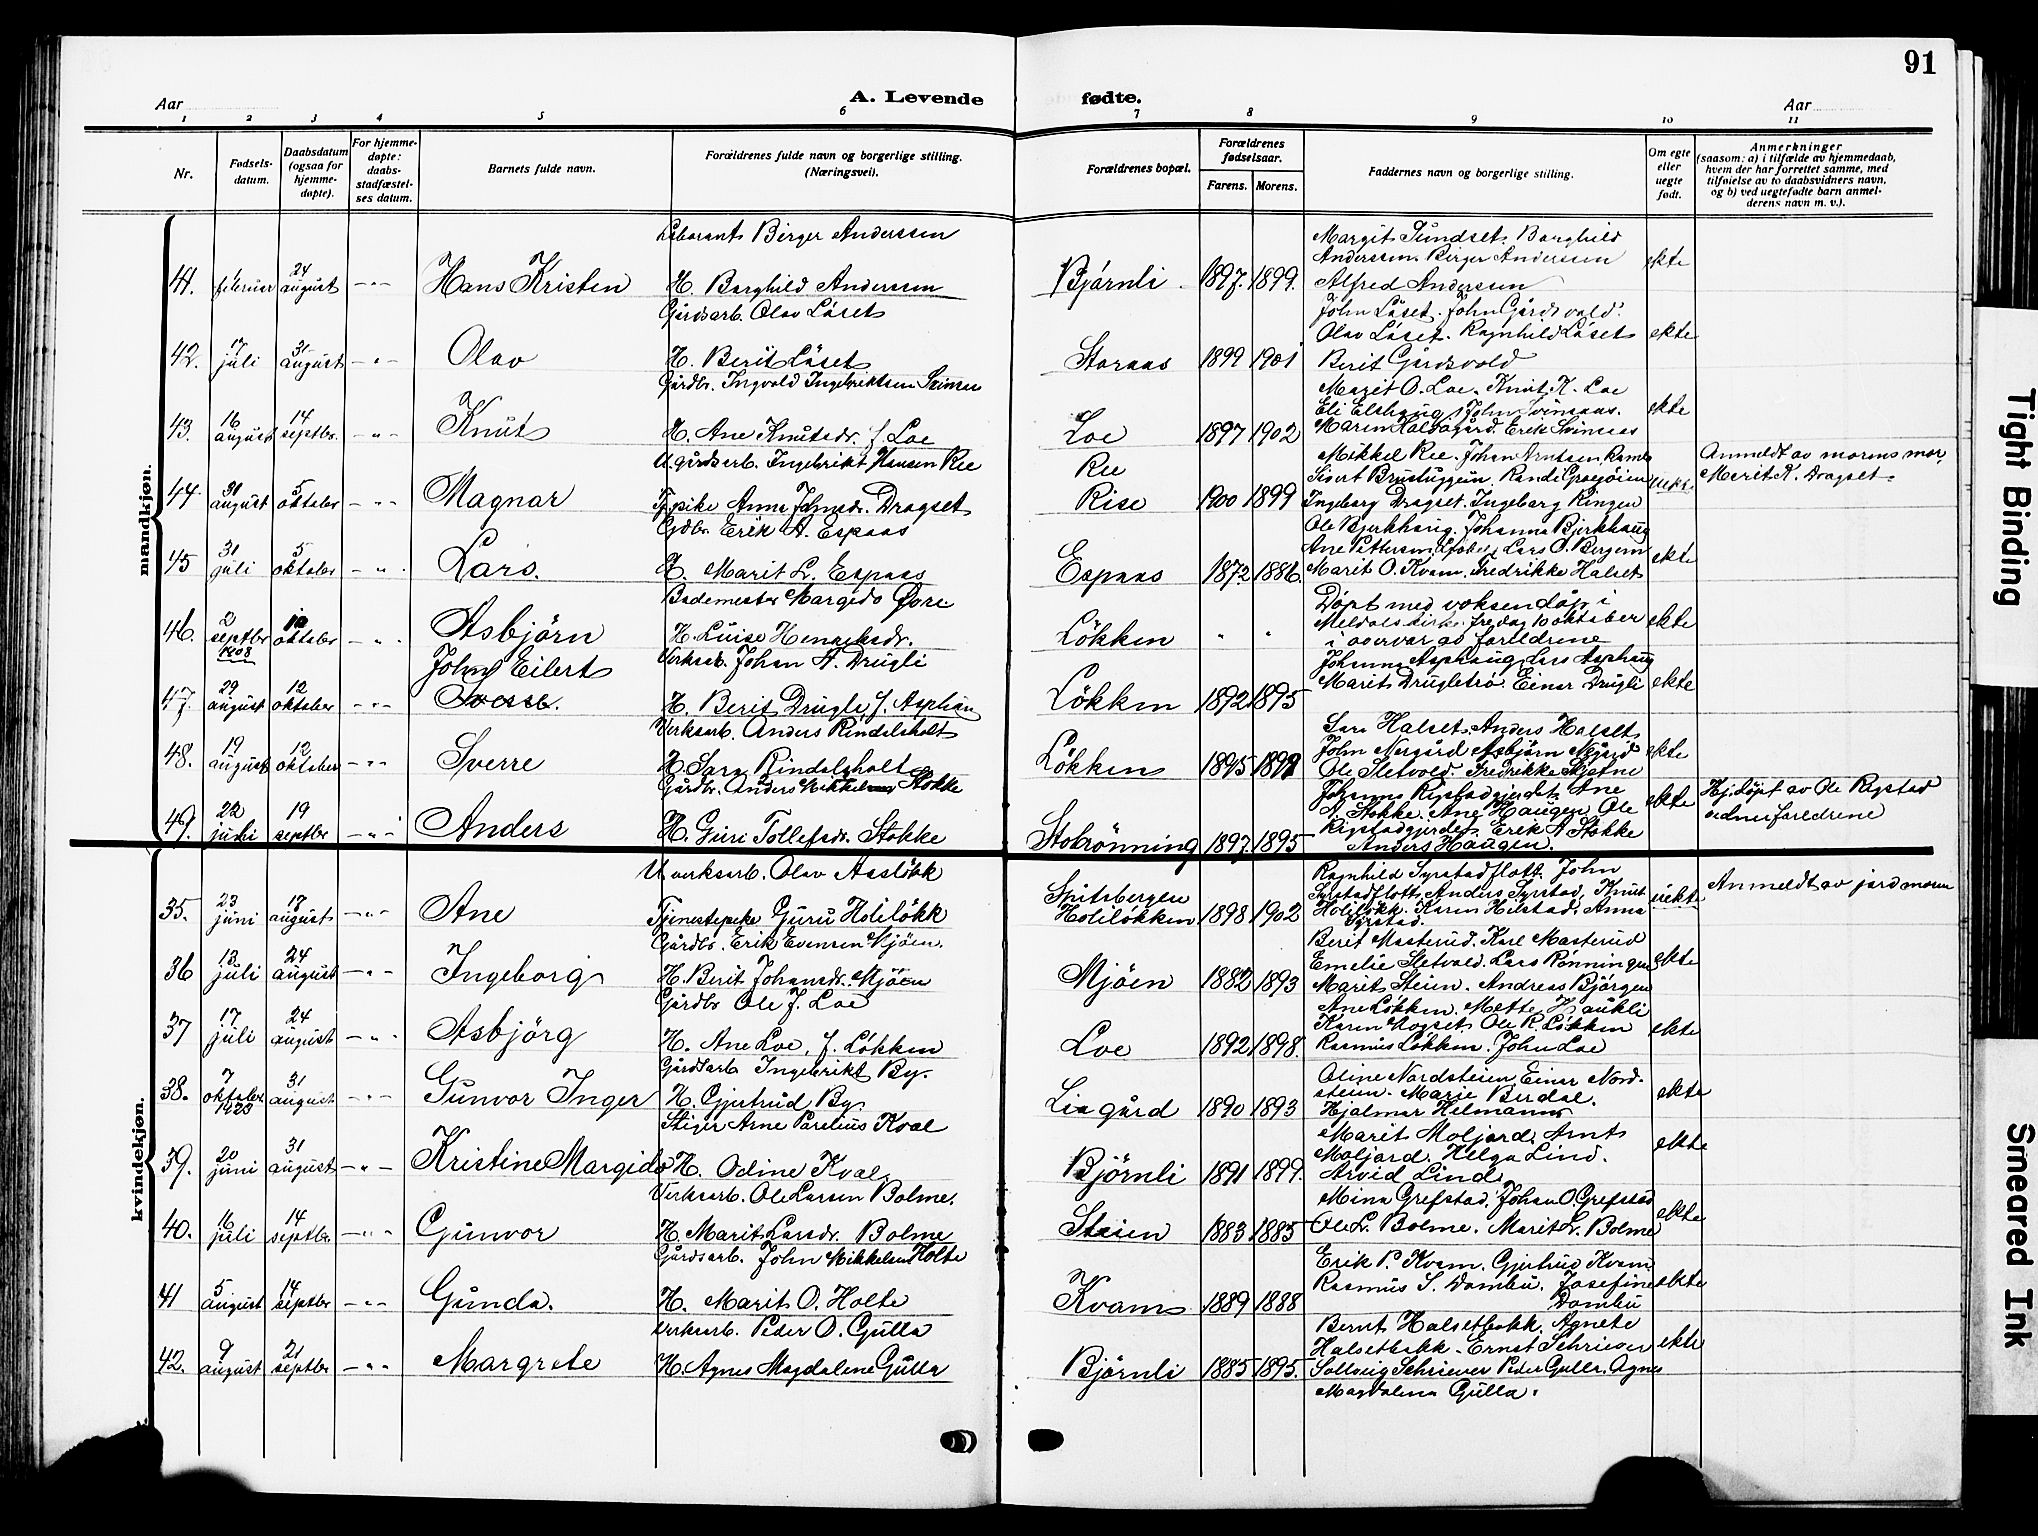 91
Aar
A. Levende fødte.
Aar
1 2 3 4 5 6 7 8 9 10 11
Nr.
Fødsels-datum.
Daabsdatum (ogsaa for hjemme-døpte).
For hjemme-døpte: daabs-stadfæstel-ses datum.
Barnets fulde navn.
Forældrenes fulde navn og borgerlige stilling. (Næringsvei).
Forældrenes bopæl.
Forældrenes fødselsaar.
Farens. Morens.
Faddernes navn og borgerlige stilling.
Om egte eller uegte født.
Anmerkninger
(saasom: a) i tilfælde av hjemmedaab, hvem der har forrettet samme, med tilføielse av to daabsvidners navn, og b) ved uegtefødte barn anmel-derens navn m. v.).
mandkjøn.
Laborant Birger Anderssen
Margit Sundset. Borghild
Anderssen. Birger Anderssen
41. februar 24 august -"- Hans Kristen H. Borghild Anderssen Björnli 1897. 1899. Alfred Anderssen ekte
Gårdsarb. Olav Löset
John Löset. John Gårdsvold.
Olav Löset. Ragnhild Löset
42. 17 juli 31 august -"- Olav H. Berit Löset Storaas 1899 1901 Berit Gårdsvold ekte
Gårdbr. Ingvald Ingebriktsen Svinsaas
Marit O. Loe. Knut K. Loe
Eli Elshaug. John Svinsaas.
43. 16 august 14 septbr. -"- Knut H. Ane Knutsdr. f. Loe Loe 1897 1902 Maren Haldogård. Erik Svinsaas ekte
U. gårdsarb. Ingebrikt Hansen Ree
Ree
Mikkel Ree. Johan Arntsen
Anmeldt av morens mor,
Sivert Brustuggun. Randi Grœsjöien
Marit K. Dragset.
44. 31 august 5 oktober -"- Magnar Tj.pike Anna Johnsdr. Dragset Rise 1900 1899 Ingeborg Dragset. Ingeborg Ringen uekte
Gdbr. Erik A. Espaas
Ole Bjerkhaug. Johanna Bjerkhaug
Ane Pettersen Lars O. Bergem
45 31 juli 5 oktober -"- Lars. H. Marit L. Espaas Espaas 1872 1886. Marit O. Kvam. Fredrikke Halset ekte
Bademester Margido Øvre
Döpt med voksendåp i
Meldals kirke fredag 10 oktober
46. 2 septbr 1908 10 oktober -"- Asbjörn H. Luise Henriksdr. Løkken " " i overvær av foreldrene ekte
Verksarb. Johan A. Drugli
Johanna Asphaug. Lars Asphaug
Marit Drugletrö. Einar Drugli
47. 29 august 12 oktober -"- John Eilert Sverre. H. Berit Drugli f. Asphaug Løkken 1892 1895 ekte
Verksarb. Anders Rindalsholt
Sara Halset. Anders Halset
John Nergård. Asbjörn Nergård
48. 19 august 12 oktober -"- Sverre H. Sara Rindalsholt Løkken 1895 1897 Ole Sletvold. Fredrikke Skjetne ekte
Gårdbr. Anders Mikkelsen Stokke
Johanna Rigstadgjerdet. Ane
A. Stokke. Ane Haugen. Ole
Hj.döpt av Ole Rigstad
Rigstadgjerdet. Erik A Stokke
vidner foreldrene
49. 22 juni 19 septbr -"- Anders H. Guri Tollefsdr. Stokke Stobrönning 1897. 1895 Anders Haugen. ekte
kvindekjøn.
U verksarb. Olav Aaslökk
Spitsbergen
Ragnhild Syrstadflott. John
Syrstadflott. Anders Syrstad. Knut
Anmeldt av jordmoren
35. 23 juni 17 august -"- Ane Tjenestepike Guru Holilökk Holilökken 1898 1902 Holilökk. Karen Hilstad. Anna Syrstad. uekte
Gårdbr. Erik Evensen Mjöen.
Berit Masterud. Karl Masterud
Emelie Sletvold. Lars Rönningen
36 13 juli 24 august -"- Ingeborg H. Berit Johansdr. Mjöen Mjöen 1882 1893 Marit Steien. Andreas Bjørgen ekte
Gårdbr Ole J. Loe
Ane Løkken. Mette Haukli
Karen Mogset. Ole R. Løkken
37 17 juli 24 august -"- Asbjörg H. Ane Loe, f. Løkken Loe 1892 1898. Rasmus Løkken. John Loe ekte
Gårdsarb Ingebrikt By.
Oline Nordsteien. Einar Nord-
steien. Marie Berdal.
38. 7 oktober 1923 31 august -"- Gunvor Inger H. Gjertrud By. Liagård 1890 1893 Hjalmar Helmann ekte
Stiger Arne Parelius Kval
Marit Moljord. Arnt
Moljord. Helga Lind.
39. 20 juni 31 august -"- Kristine Margido H. Odine Kval Björnli 1891 1899. Arvid Lind. ekte
Verksarb. Ole Larsen Bolme.
Mina Grefstad. Johan O. Grefstad
40. 16 juli 14 septbr. -"- Gunvor H. Marit Larsdr. Bolme Steien 1883 1885 Ole L. Bolme. Marit L. Bolme ekte
Gårdsarb. John Mikkelsen Holte
Erik P. Kvam. Gjertrud Kvam
Rasmus S. Dombu. Josefine
41 5 august 14 septbr -"- Gunda. H. Marit O. Holte Kvam 1889 1888 Dombu ekte
Verksarb. Peder O. Gulla
Bernt Halsetbakk. Agnete
Halsetbakk. Ernst Schriever
42. 9 august 21 septbr -"- Margrete H. Agnes Magdalene Gulla Björnli 1885 1895. Sollveig Schriever Peder Gulla. Agnes ekte
Magdalena Gulla.
Tight Binding
Smeared Ink